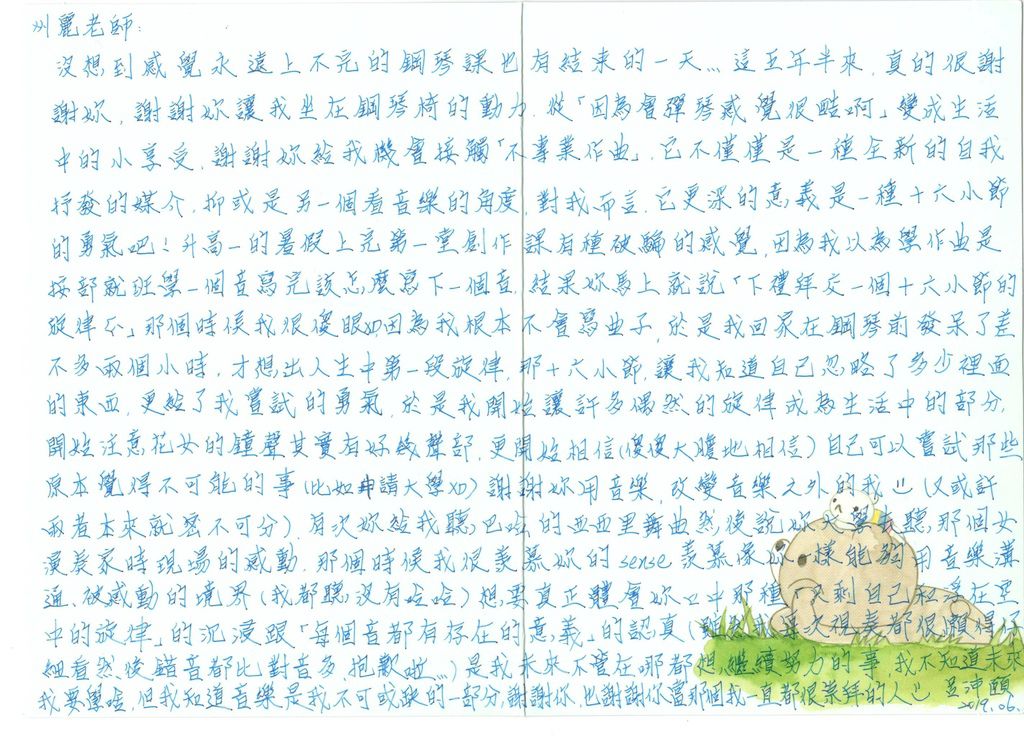 州麗老師:
沒想到感覺永遠上不完的鋼琴課也有結束的一天... 這五年半來, 真的很謝
謝妳, 謝謝妳讓我坐在鋼琴椅的動力, 從「因為會彈琴感覺很酷啊」變成生活
中的小享受, 謝謝妳給我機會接觸「不專業作曲」, 它不僅僅是一種全新的自我
抒發的媒介, 抑或是另一個看音樂的角度, 對我而言, 它更深的意義是一種十六小節
的勇氣吧! 升高一的暑假上完第一堂創作課有種被騙的感覺, 因為我以為學作曲是
按部就班學一個音寫完該怎麼寫下一個音, 結果妳馬上就說「下禮拜交一個十六小節的
旋律」那個時候我很傻眼XD因為我根本不會寫曲子, 於是我回家在鋼琴前發呆了差
不多兩個小時, 才想出人生中第一段旋律, 那十六小節, 讓我知道自己忽略了多少裡面
的東西, 更給了我嘗試的勇氣, 於是我開始讓許多偶然的旋律成為生活中的部分,
開始注意花女的鐘聲其實有好幾聲部, 更開始相信(傻傻大膽地相信)自己可以嘗試那些
原本覺得不可能的事(比如申請大學XD) 謝謝妳用音樂, 改變音樂之外的我 (又或許
兩者本來就密不可分), 有次妳給我聽巴哈的西西里舞曲然後說妳去聽那個女
演奏家時現場的感動, 那個時候我很羨慕妳的sense 羨慕像妳一樣能夠用音樂溝
通、被感動的境界(我都聽沒有哈哈) 想要真正體會妳口中那種「只剩自己和存在空
中的旋律」的沉浸跟「每個音都有存在的意義」的認真(雖然我每次視奏都很懶得仔
細看然後錯音都比對音多, 抱歉啦...) 是我未來不管在哪都想繼續努力的事, 我不知道未來
我要學啥, 但我知道音樂是我不可或缺的一部分, 謝謝你, 也謝謝你當那個我一直都很崇拜的人
2019.06.